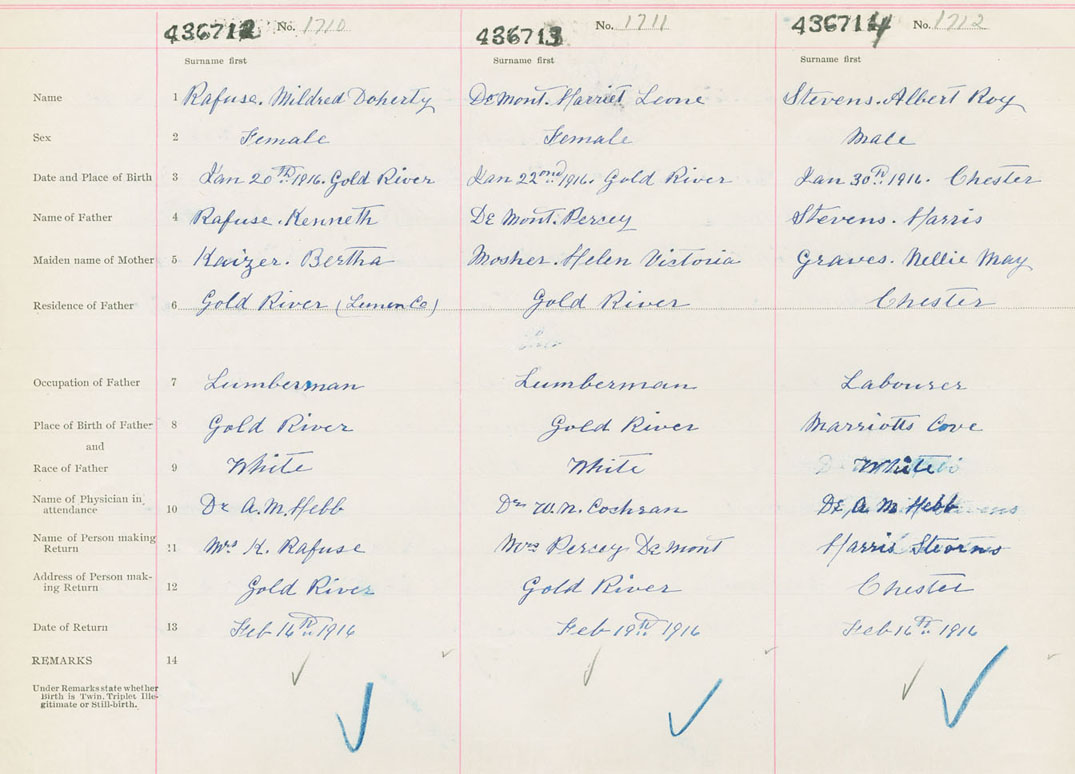 436712 No. 1710 436713 No. 1711 436714 No. 1712
Surname first Surname first Surname first
Name 1 Rafuse. Mildred Doherty DeMont. Harriet Leone Stevens. Albert Roy
Sex 2 Female Female Male
Date and Place of Birth 3 Jan 20th 1916. Gold River Jan 22nd 1916. Gold River Jan 30th 1916. Chester
Name of Father 4 Rafuse. Kenneth De Mont. Percey Stevens. Harris
Maiden name of Mother 5 Kaizer. Bertha Mosher. Helen Victoria Graves. Nellie May
Residence of Father 6 Gold River (Lunen Co) Gold River Chester
Occupation of Father 7 Lumberman Lumberman Labourer
Place of Birth of Father 8 Gold River Gold River Marriotts Cove
and
Race of Father 9 White White White
Name of Physician in
attendance 10 Dr A. M. Hebb Dr W. N. Cochran Dr A M Hebb
Name of Person making
Return 11 Mrs K. Rafuse Mrs Percey DeMont Harris Stevens
Address of Person mak-
ing Return 12 Gold River Gold River Chester
Date of Return 13 Feb 16th 1916 Feb 19th 1916 Feb 16th 1916
REMARKS 14
Under Remarks state whether
Birth is Twin, Triplet Ille-
gitimate or Still-birth.